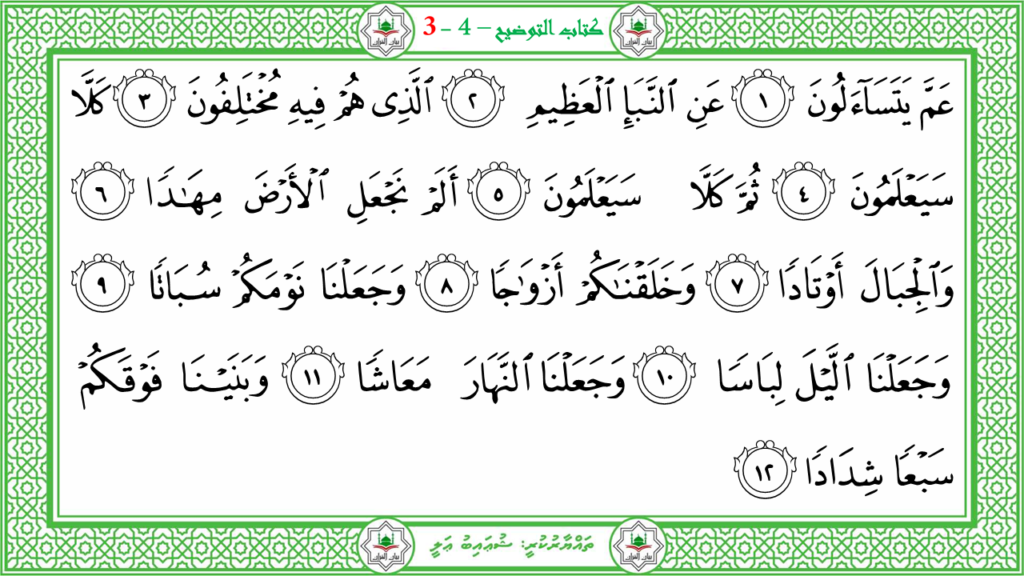 كتاب التوضيح – 4 - 3
عَمَّ يَتَسَآءَلُونَ ١ عَنِ ٱلنَّبَإِ ٱلۡعَظِيمِ ٢ ٱلَّذِى هُمۡ فِيهِ مُخۡتَلِفُونَ ٣ كَلَّا
سَيَعۡلَمُونَ ٤ ثُمَّ كَلَّا سَيَعۡلَمُونَ ٥ أَلَمۡ نَجۡعَلِ ٱلۡأَرۡضَ مِهَٰدٗا ٦
وَٱلۡجِبَالَ أَوۡتَادٗا ٧ وَخَلَقۡنَٰكُمۡ أَزۡوَٰجٗا ٨ وَجَعَلۡنَا نَوۡمَكُمۡ سُبَاتٗا ٩
وَجَعَلۡنَا ٱلَّيۡلَ لِبَاسٗا ١٠ وَجَعَلۡنَا ٱلنَّهَارَ مَعَاشٗا ١١ وَبَنَيۡنَا فَوۡقَكُمۡ
سَبۡعٗا شِدَادٗا ١٢
ތައްޔާރުކުރީ: ޝުޢައިބު ޢަލީ